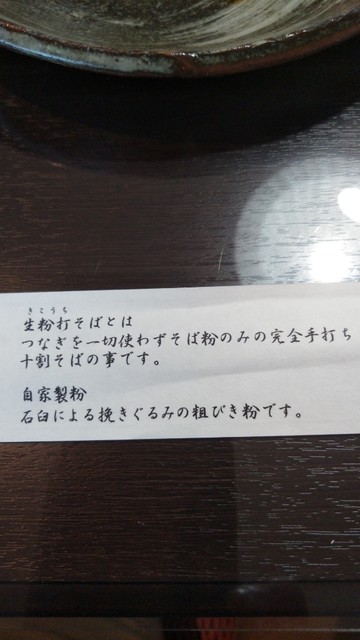 きこうち
生粉打そばとは
つなぎを一切使わずそば粉のみの完全手打ち
十割そばの事です。
自家製粉
石臼による挽きぐるみの粗びき粉です。